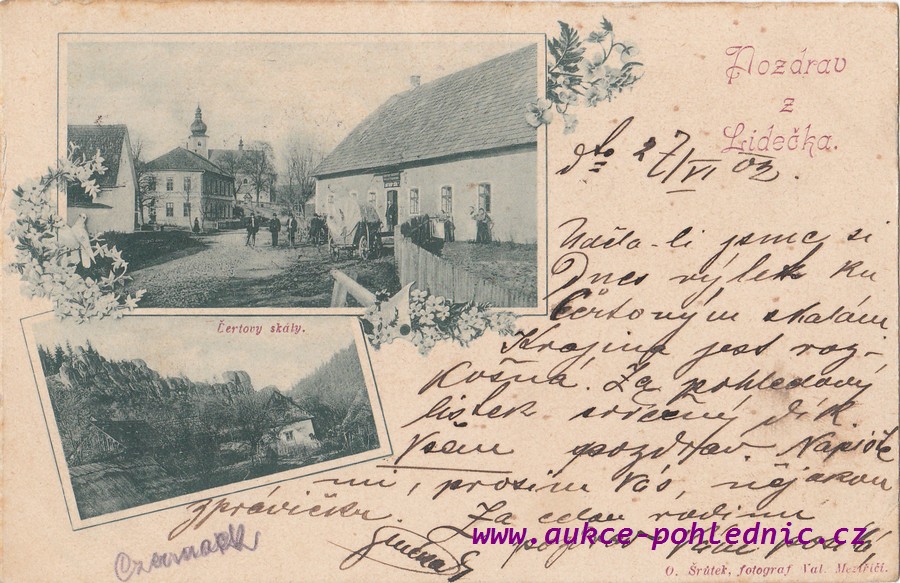 Pozdrav
z
Lidečka.
dto 27/VI 02.
jsme si
Dnes výlet ku
Čertovým skalám
Krajina jest roz-
košná. Za pohledový
lístek srdečný dík.
Všem pozdrav. Napište
mi, prosím Vás, nějakou
zprávičku.
Za celou rodinu
Čertovy skály.
www.aukce-pohlednic.cz
O. Šrůtek, fotograf, Val. Meziříčí.